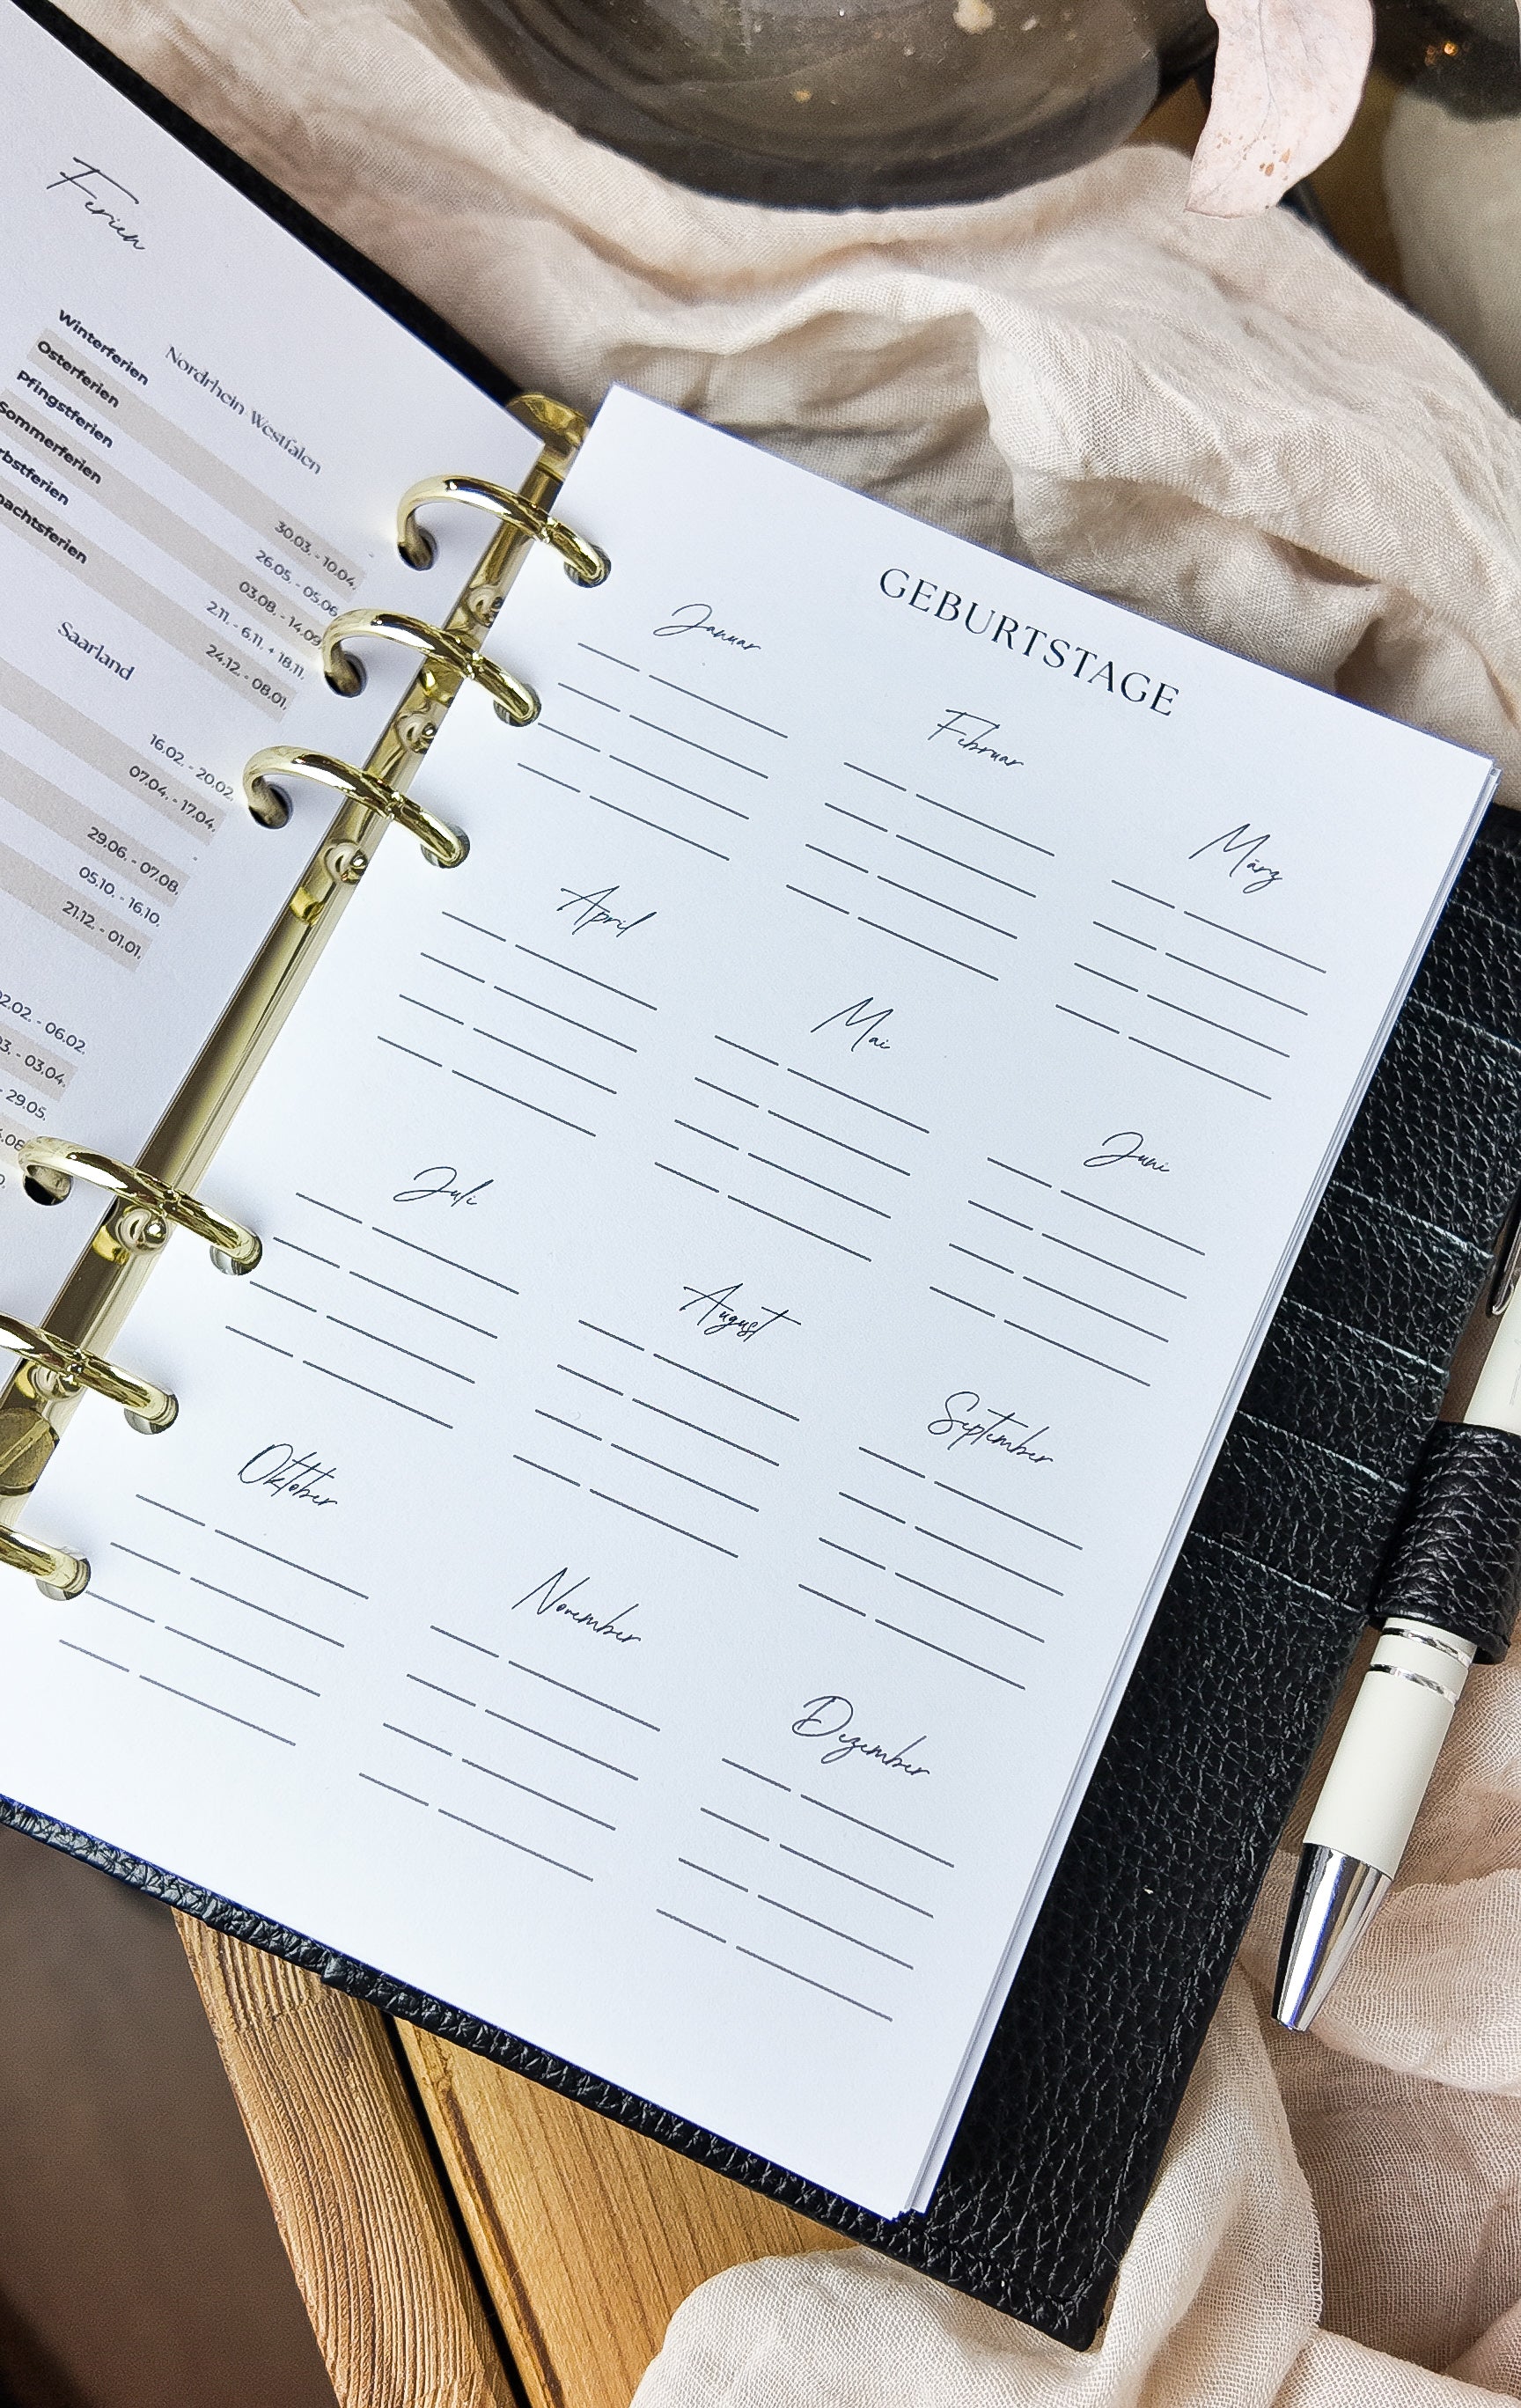 Ferien
Nordrhein Westfalen
Winterferien
Osterferien 30.03. - 10.04.
Pfingstferien 26.05. - 05.06.
Sommerferien 03.08. - 14.09.
2.11. - 6.11. + 18.11.
24.12. - 08.01.
Saarland
16.02. - 20.02.
07.04. - 17.04.
29.06. - 07.08.
05.10. - 16.10.
21.12. - 01.01.
- 06.02.
- 03.04.
- 29.05.
GEBURTSTAGE
Januar
Februar
März
April
Mai
Juni
Juli
August
September
Oktober
November
Dezember